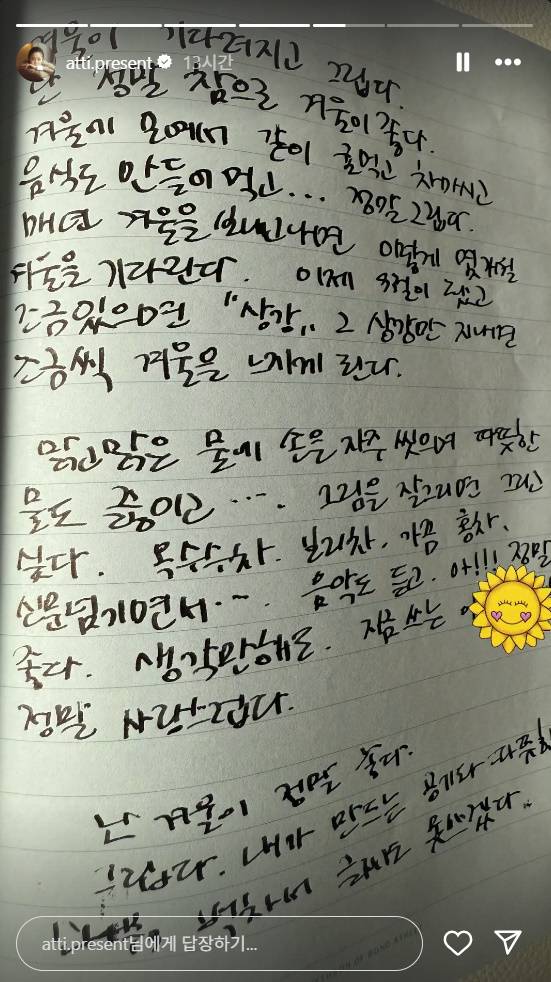 atti.present 13시간
겨울이 기다려지고 그립다.
난 정말 참으로 겨울이 좋다.
겨울에 모여서 같이 귤먹고 차마시고
음식도 만들어먹고... 정말그립다.
매년 겨울을 보내고나면 이렇게 몇개월
겨울을 기다린다. 이제 9월이 됐고
조금있으면 "상강" 그 상강만 지내면
조금씩 겨울을 느끼게 된다.
맑고맑은 물에 손을 자주 씻으며 따뜻한
물도 끓이고 .... 그림을 잘그리면 그리고
싶다. 옥수수차. 보리차. 가끔 홍차.
신문넘기면서.... 음악도 듣고. 아!!! 정말
좋다. 생각만해도. 지금 쓰는
정말 사랑스럽다.
난 겨울이 정말 좋다.
그립다. 내가 만드는 공기와 따뜻한
벅차서 글씨도 못쓰겠다.
atti.present님에게 답장하기...